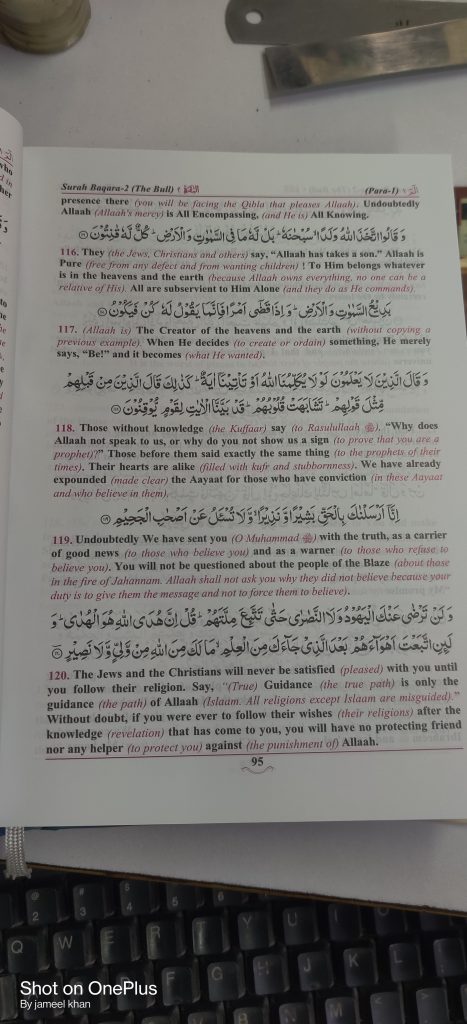 Surah Baqara-2 (The Bull) البقرة ٢ (Para-1) الٓمّٓ ١
presence there (you will be facing the Qibla that pleases Allaah). Undoubtedly
Allaah (Allaah's mercy) is All Encompassing, (and He is) All Knowing.
وَ قَالُوا اتَّخَذَ اللّٰهُ وَلَدًا ۙ سُبْحٰنَهٗ ؕ بَلْ لَّهٗ مَا فِی السَّمٰوٰتِ وَ الْاَرْضِ ؕ كُلٌّ لَّهٗ قٰنِتُوْنَ ﴿۱۱۶﴾
116. They (the Jews, Christians and others) say, "Allaah has taken a son." Allaah is
Pure (free from any defect and from wanting children) ! To Him belongs whatever
is in the heavens and the earth (because Allaah owns everything, no one can be a
relative of His). All are subservient to Him Alone (and they do as He commands).
بَدِیْعُ السَّمٰوٰتِ وَ الْاَرْضِ ؕ وَ اِذَا قَضٰۤی اَمْرًا فَاِنَّمَا یَقُوْلُ لَهٗ كُنْ فَیَكُوْنُ ﴿۱۱۷﴾
117. (Allaah is) The Creator of the heavens and the earth (without copying a
previous example). When He decides (to create or ordain) something, He merely
says, "Be!" and it becomes (what He wanted).
وَ قَالَ الَّذِیْنَ لَا یَعْلَمُوْنَ لَوْ لَا یُكَلِّمُنَا اللّٰهُ اَوْ تَاْتِیْنَاۤ اٰیَةٌ ؕ كَذٰلِكَ قَالَ الَّذِیْنَ مِنْ قَبْلِهِمْ
مِّثْلَ قَوْلِهِمْ ؕ تَشَابَهَتْ قُلُوْبُهُمْ ؕ قَدْ بَیَّنَّا الْاٰیٰتِ لِقَوْمٍ یُّوْقِنُوْنَ ﴿۱۱۸﴾
118. Those without knowledge (the Kuffaar) say (to Rasulullaah ﷺ), "Why does
Allaah not speak to us, or why do you not show us a sign (to prove that you are a
prophet)?" Those before them said exactly the same thing (to the prophets of their
times). Their hearts are alike (filled with kufr and stubbornness). We have already
expounded (made clear) the Aayaat for those who have conviction (in these Aayaat
and who believe in them).
اِنَّاۤ اَرْسَلْنٰكَ بِالْحَقِّ بَشِیْرًا وَّ نَذِیْرًا ۙ وَّ لَا تُسْـَٔلُ عَنْ اَصْحٰبِ الْجَحِیْمِ ﴿۱۱۹﴾
119. Undoubtedly We have sent you (O Muhammad ﷺ) with the truth, as a carrier
of good news (to those who believe you) and as a warner (to those who refuse to
believe you). You will not be questioned about the people of the Blaze (about those
in the fire of Jahannam. Allaah shall not ask you why they did not believe because your
duty is to give them the message and not to force them to believe).
وَ لَنْ تَرْضٰی عَنْكَ الْیَهُوْدُ وَ لَا النَّصٰرٰی حَتّٰی تَتَّبِعَ مِلَّتَهُمْ ؕ قُلْ اِنَّ هُدَی اللّٰهِ هُوَ الْهُدٰی ؕ وَ
لَئِنِ اتَّبَعْتَ اَهْوَآءَهُمْ بَعْدَ الَّذِیْ جَآءَكَ مِنَ الْعِلْمِ ۙ مَا لَكَ مِنَ اللّٰهِ مِنْ وَّلِیٍّ وَّ لَا نَصِیْرٍ ﴿۱۲۰﴾
120. The Jews and the Christians will never be satisfied (pleased) with you until
you follow their religion. Say, "(True) Guidance (the true path) is only the
guidance (the path) of Allaah (Islaam. All religions except Islaam are misguided)."
Without doubt, if you were ever to follow their wishes (their religions) after the
knowledge (revelation) that has come to you, you will have no protecting friend
nor any helper (to protect you) against (the punishment of) Allaah.
95
Shot on OnePlus
By jameel khan